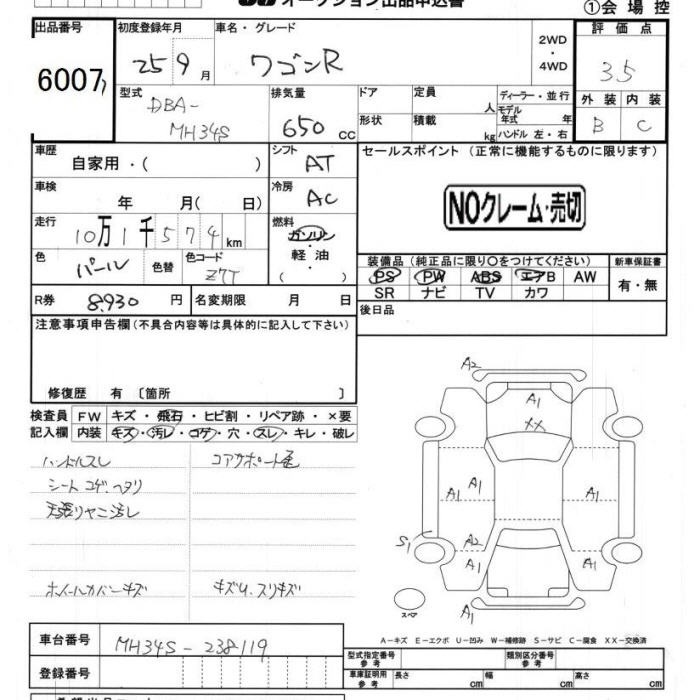 オークション出品申込書
①会場控
出品番号
初度登録年月
車名・グレード
2WD
・
4WD
評価点
6007
25 9月
ワゴンR
3.5
型式
排気量
ドア
定員
人
ディーラー・並行
外装
内装
DBA-
MH34S
650 cc
形状
積載
kg
モデル年式
年
ハンドル 左・右
B
C
車歴
自家用・( )
シフト
AT
セールスポイント (正常に機能するものに限ります)
車検
年 月( 日)
冷房
AC
NOクレーム・売切
走行
10万1千574km
燃料
ガソリン
・
軽油
( )
色
パール
色替
色コード
Z7T
装備品 (純正品に限り〇をつけてください)
新車保証書
PS PW ABS エアB AW
SR ナビ TV カワ
有・無
R券
8,930円
名変期限
月 日
後日品
注意事項申告欄 (不具合内容等は具体的に記入して下さい)
修復歴 有 〔箇所 〕
検査員
記入欄
FW キズ・飛石・ヒビ割・リペア跡・×要
内装 キズ・汚レ・コゲ・穴・スレ・キレ・破レ
ハンドルスレ
コアサポート色
シートコゲ、ヘタリ
天張りヤニ汚し
ホイールカバーキズ
キズU、スリキズ
A2
A1
XX
A1
A1
A1
A1
S1
A2
A1
A1
スペア
A1
A−キズ E−エクボ U−凹み W−補修跡 S−サビ C−腐食 XX−交換済
車台番号
MH34S-238119
型式指定番号
参考
類別区分番号
参考
登録番号
車庫証明用
参考
長さ
cm
幅
cm
高さ
cm